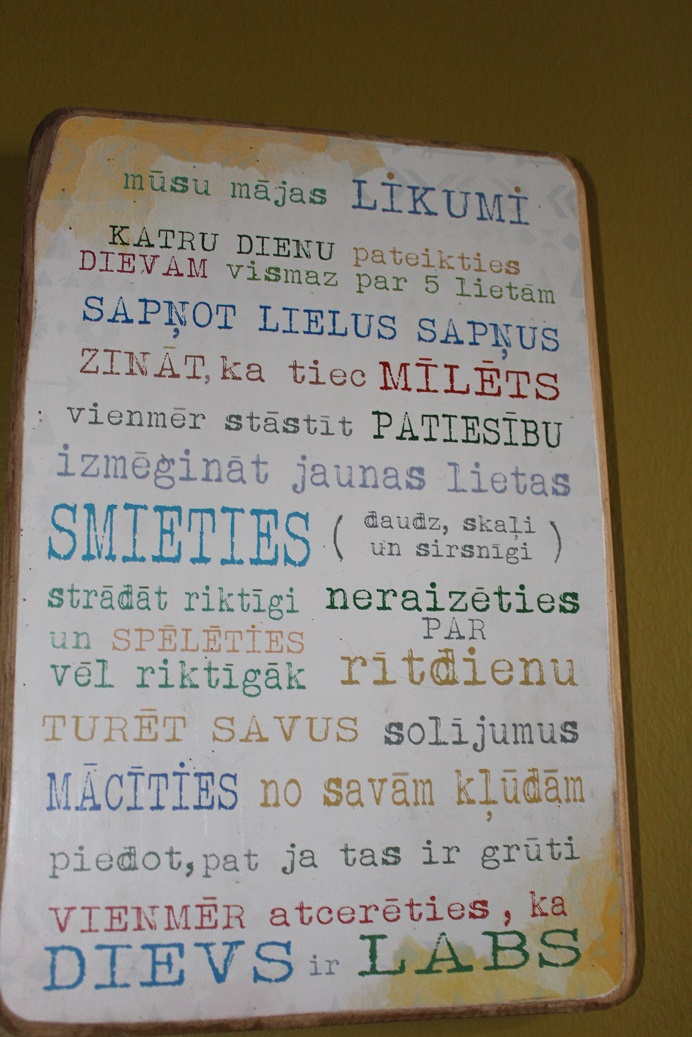 mūsu mājas LİKUMİ
KATRU DIENU pateikties
DIEVAM vismaz par 5 lietām
SAPŅOT LIELUS SAPŅUS
ZINĀT, ka tiec MĪLĒTS
vienmēr stāstīt PATIESĪBU
izmēģināt jaunas lietas
SMIETIES ( daudz, skaļi
un sirsnīgi )
strādāt riktīgi
un SPĒLĒTİES
vēl riktīgāk
neraizēties
PAR
rītdienu
TURĒT SAVUS solījumus
MĀCĪTİES no savām kļūdām
piedot, pat ja tas ir grūti
VIENMĒR atcerēties, ka
DIEVS ir LABS